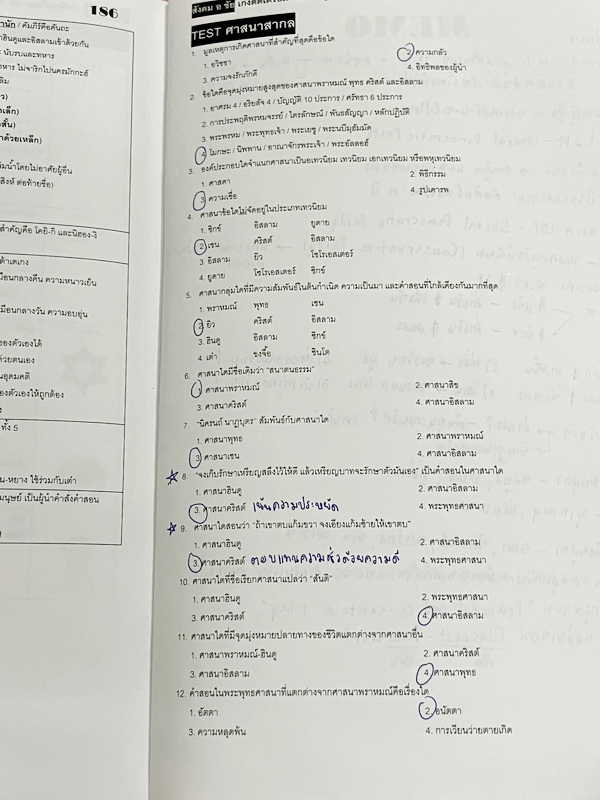 186
านัก / คัมภีร์คือคันถะ
าฮินดูและอิสลามเข้าด้วยกัน
ะ นับรบและทหาร
าหาร ไม่จาริกไปนครมักกะฮ์
ว)
าด้วยเหล็ก)
มน้ำโดยไม่อาศัยผู้อื่น
สิงห์ ต่อท้ายชื่อ)
สำคัญคือ โคยิ-กิ และนิฮอง-งิ
มือนกลางคืน ความหนาวเย็น
มือนกลางวัน ความอบอุ่น
ของตัวเองได้
ด้วยตนเอง
นอุดมคติ
องตัวเองให้ถูกต้อง
ทั้ง 5
น-หยาง ใช้ร่วมกับเต๋า
มนุษย์ เป็นผู้นำคำสั่งคำสอน
TEST ศาสนาสากล
1. มูลเหตุการเกิดศาสนาที่สำคัญที่สุดคือข้อใด
1. อวิชชา 2. ความกลัว
3. ความจงรักภักดี 4. อิทธิพลของผู้นำ
2. ข้อใดคือจุดมุ่งหมายสูงสุดของศาสนาพราหมณ์ พุทธ คริสต์ และอิสลาม
1. อาศรม 4 / อริยสัจ 4 / บัญญัติ 10 ประการ / ศรัทธา 6 ประการ
2. การประพฤติพรหมจรรย์ / ไตรลักษณ์ / พันธสัญญา / หลักปฏิบัติ
3. พระพรหม / พระพุทธเจ้า / พระเยซู / พระนบีมุฮัมมัด
4. โมกษะ / นิพพาน / อาณาจักรพระเจ้า / พระอัลลอฮ์
3. องค์ประกอบใดจำแนกศาสนาเป็นอเทวนิยม เทวนิยม เอกเทวนิยม หรือพหุเทวนิยม
1. ศาสดา 2. พิธีกรรม
3. ความเชื่อ 4. รูปเคารพ
4. ศาสนาข้อใดไม่จัดอยู่ในประเภทเทวนิยม
1. ซิกข์ อิสลาม ยูดาย
2. เชน คริสต์ อิสลาม
3. อิสลาม ยิว โซโรเอสเตอร์
4. ยูดาย โซโรเอสเตอร์ ซิกข์
5. ศาสนากลุ่มใดที่มีความสัมพันธ์ในต้นกำเนิด ความเป็นมา และคำสอนที่ใกล้เคียงกันมากที่สุด
1. พราหมณ์ พุทธ เชน
2. ยิว คริสต์ อิสลาม
3. ฮินดู อิสลาม ซิกข์
4. เต๋า ขงจื๊อ ชินโต
6. ศาสนาใดมีชื่อเดิมว่า "สนาตนธรรม"
1. ศาสนาพราหมณ์ 2. ศาสนาสิข
3. ศาสนาคริสต์ 4. ศาสนาอิสลาม
7. "นิครนถ์ นาฏบุตร" สัมพันธ์กับศาสนาใด
1. ศาสนาพุทธ 2. ศาสนาพราหมณ์
3. ศาสนาเชน 4. ศาสนาอิสลาม
8. "จงเก็บรักษาเหรียญสลึงไว้ให้ดี แล้วเหรียญบาทจะรักษาตัวมันเอง" เป็นคำสอนในศาสนาใด
1. ศาสนาฮินดู 2. ศาสนาอิสลาม
3. ศาสนาคริสต์ เน้นความประหยัด 4. พระพุทธศาสนา
9. ศาสนาใดสอนว่า "ถ้าเขาตบแก้มขวา จงเอียงแก้มซ้ายให้เขาตบ"
1. ศาสนาฮินดู 2. ศาสนาอิสลาม
3. ศาสนาคริสต์ ตอบแทนความชั่วด้วยความดี 4. พระพุทธศาสนา
10. ศาสนาใดที่ชื่อเรียกศาสนาแปลว่า "สันติ"
1. ศาสนาฮินดู 2. พระพุทธศาสนา
3. ศาสนาคริสต์ 4. ศาสนาอิสลาม
11. ศาสนาใดที่มีจุดมุ่งหมายปลายทางของชีวิตแตกต่างจากศาสนาอื่น
1. ศาสนาพราหมณ์-ฮินดู 2. ศาสนาคริสต์
3. ศาสนาอิสลาม 4. ศาสนาพุทธ
12. คำสอนในพระพุทธศาสนาที่แตกต่างจากศาสนาพราหมณ์คือเรื่องใด
1. อัตตา 2. อนัตตา
3. ความหลุดพ้น 4. การเวียนว่ายตายเกิด